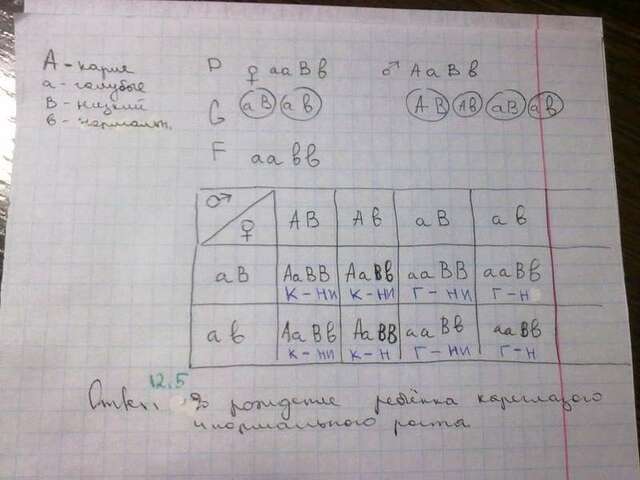 А - карие
а - голубые
В - низкий
в - нормальн.
P ♀ aaBв ♂ AaBв
G aB aв AB Aв aB aв
F aaвв
♂ ♀ AB Aв aB aв
aB AaBB AaBв aaBB aaBв
К - НИ К - НИ Г - НИ Г - Н
aв AaBв AaBB aaBв aaBB
К - НИ К - Н Г - НИ Г - Н
12,5
Ответ: % рождение ребёнка кареглазого
и нормального роста